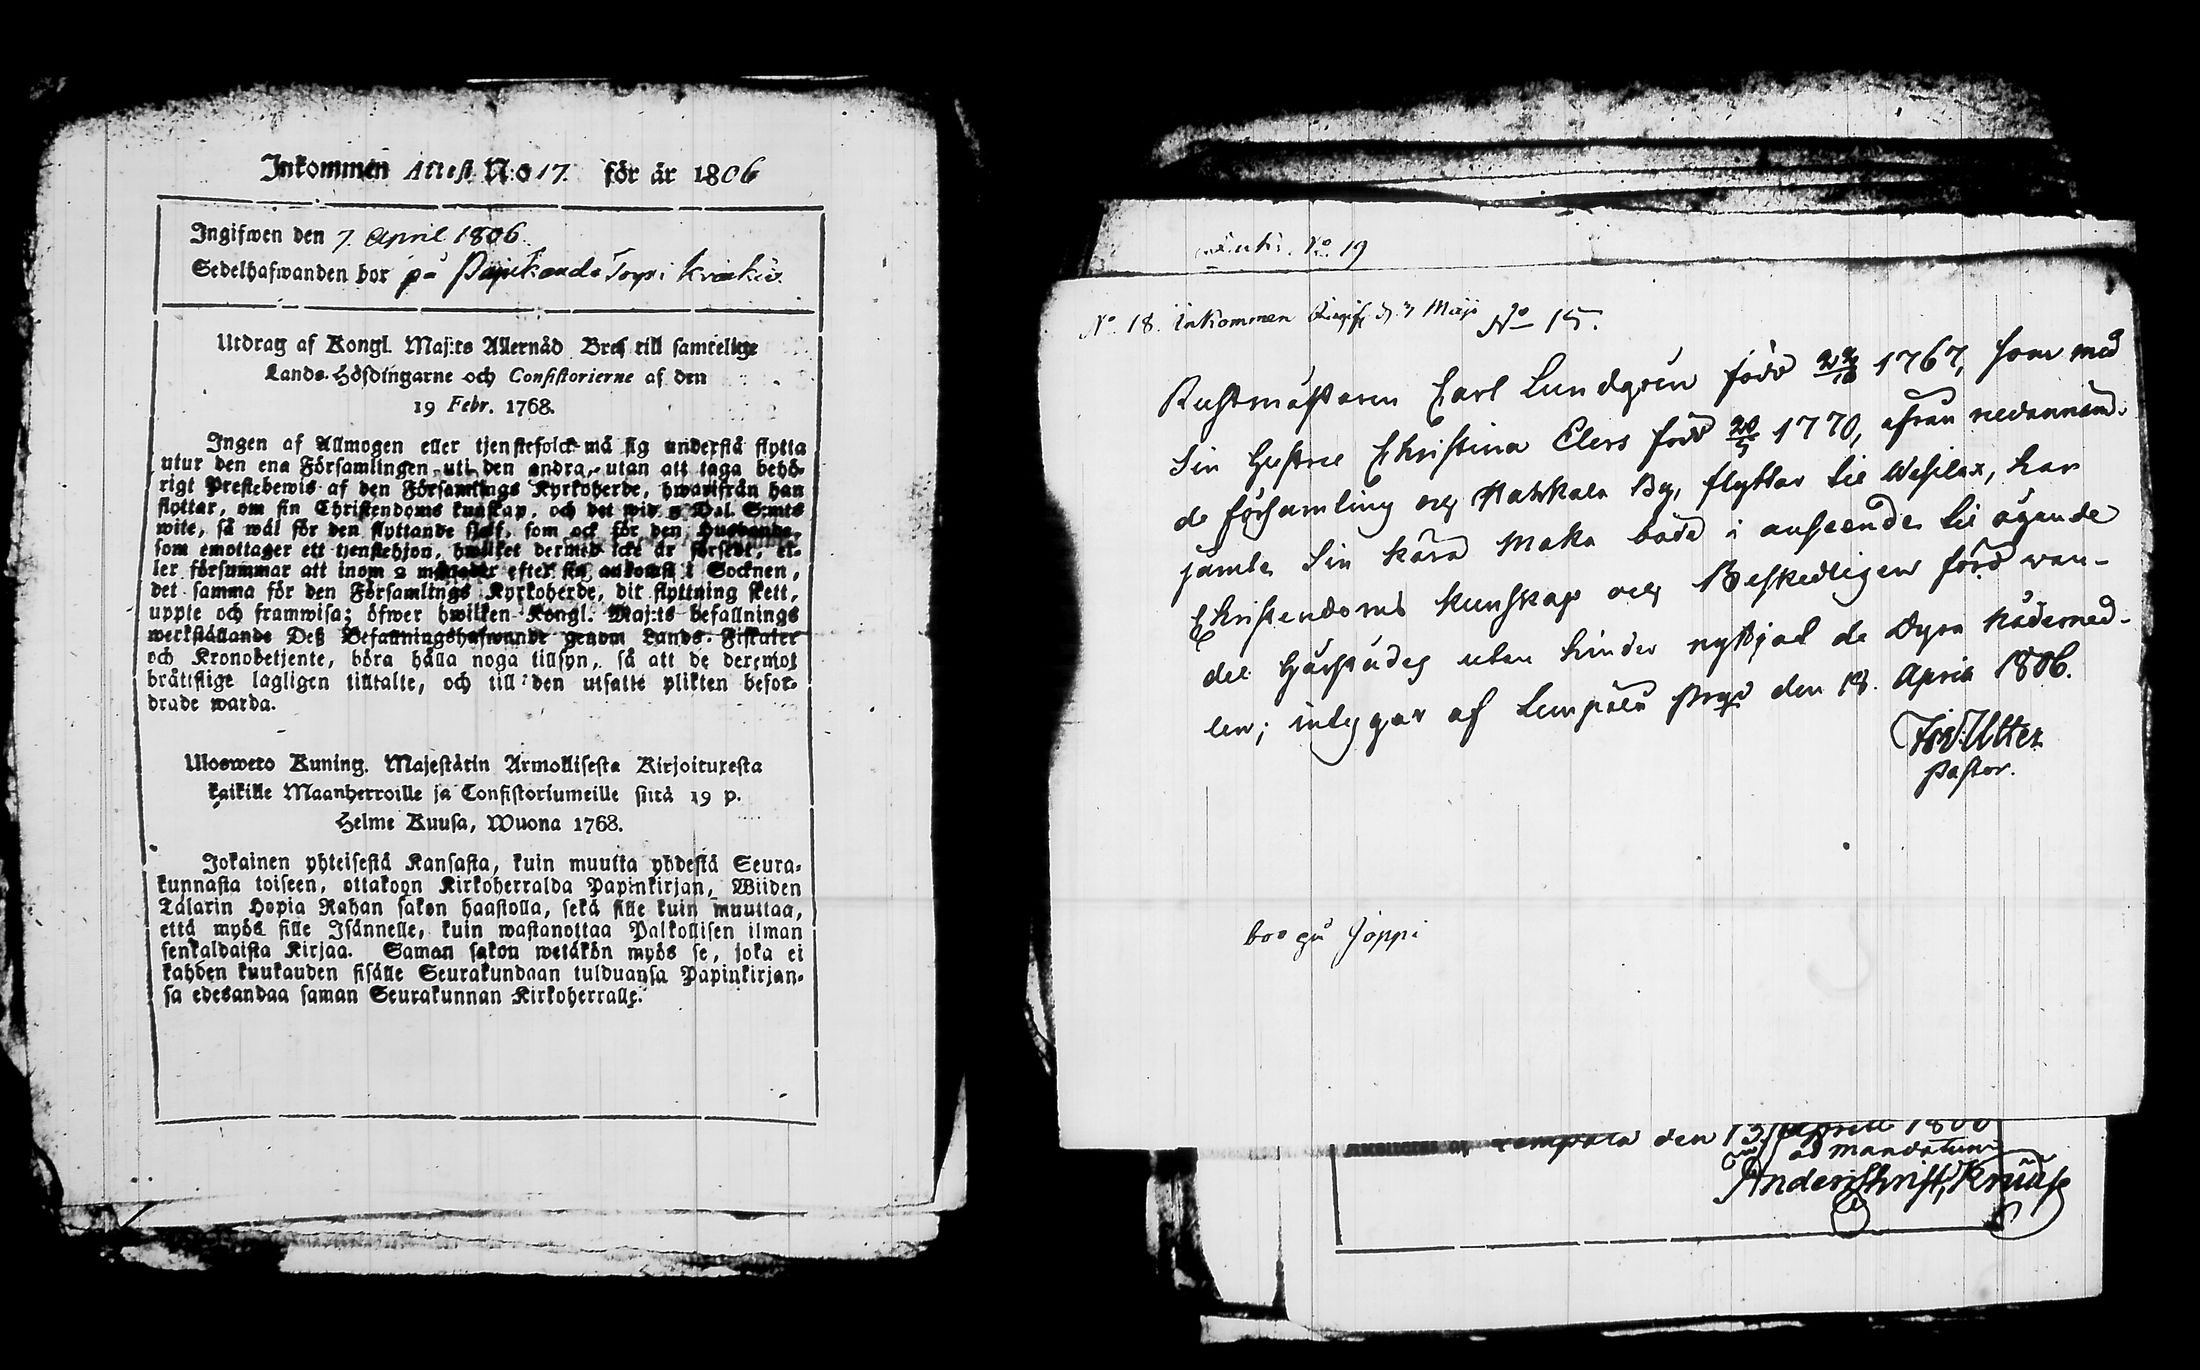 Inkommen Attest N:o 17. för år 1806
Ingifwen den 7 April 1806.
Sedelhafwanden bor på Torp i
Utdrag af Kongl. Maj:ts Allernåd Bref till samtelige
Lands-Höfdingarne och Consistorierne af den
19 Febr. 1768.
Ingen af Allmogen eller tjenstefolck må sig understå flytta
utur den ena Församlingen uti den andra, utan att taga behö-
rigt Prestebewis af den Församlings Kyrkoherde, hwarifrån han
flyttar, om sin Christendoms kunskap, och det wid 5 Dal. S:mts
wite, så wäl för den flyttande sjelf, som ock för den Husbonde,
som emottager ett tjenstehjon, hwilket dermed icke är försedt, el-
ler försummar att inom 2 månader efter sin ankomst i Socknen,
det samma för den Församlings Kyrkoherde, dit flyttning skett,
uppte och framwisa; öfwer hwilken Kongl. Maj:ts befallnings
werkställande Deß Befallningshafwande genom Lands-Fiskaler
och Kronobetjente, böra hålla noga tillsyn, så att de deremot
bråttslige lagligen tilltalte, och till den utsatte plikten befor-
drade warda.
Uloswero Kuning. Majestätin Armollisesta Kirjoituxesta
kaikille Maanherroille ja Consistoriumeille siitä 19 p.
Helme Kuusa, Wuona 1768.
Jokainen yhteisestä Kansasta, kuin muutta yhdestä Seura-
kunnasta toiseen, ottakoon Kirkoherralda Papinkirjan, Wiiden
Talarin Hopia Rahan sakon haastolla, sekä sille kuin muuttaa,
että myös sille Isännelle, kuin wastanottaa Palkollisen ilman
senkaldaista Kirjaa. Saman sakon wetäkön myös se, joka ei
kahden kuukauden sisälle Seurakundaan tulduansa Papinkirjan-
sa edesandaa saman Seurakunnan Kirkoherralle.
N:o 19
N:o 18. Inkommen d. 7 Maji N:o 15.
Rustmästaren Carl Lundgren född 1767, som med
Sin Hustru Christina Elers född 20/5 1770, ifrån nedannämd-
de församling och By, flyttar til Wesilax, har
jämte Sin kära Maka både i anseende til ägande
Christendoms kunskap och Beskedligen förd wan-
del Härstädes utan hinder nyttjat de Dyra Nådemed-
len; intygar af Lempälä Prgd den 18. April 1806.
Utter
Pastor.
bor på Joppi
Lempälä den 13 April 1806
ad mandatum